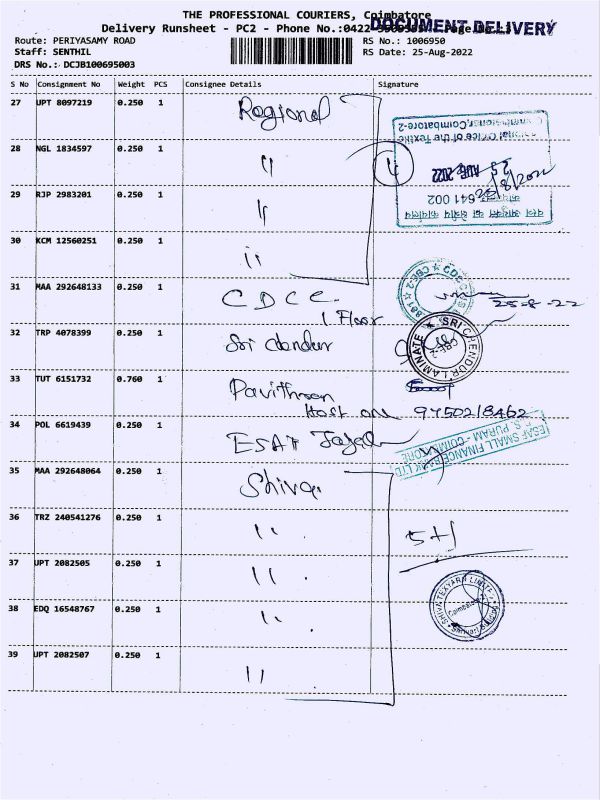 THE PROFESSIONAL COURIERS, Coimbatore
DOCUMENT DELIVERY
Delivery Runsheet - PC2 - Phone No.:0422
Route: PERIYASAMY ROAD
RS No.: 1006950
Staff: SENTHIL
RS Date: 25-Aug-2022
DRS No.: DCJB100695003
S No Consignment No Weight PCS Consignee Details Signature
27 UPT 8097219 0.250 1 Regional
28 NGL 1834597 0.250 1 〃 4
29 RJP 2983201 0.250 1 〃
30 KCM 12560251 0.250 1 〃
Regional Office of the Textile
Commissioner, Coimbatore-2
25 AUG 2022
641 002
31 MAA 292648133 0.250 1 CDCC
1 Floor
25-8-22
32 TRP 4078399 0.250 1 Sri
SRI CHENDUR LAMINATE
CBE-2
33 TUT 6151732 0.760 1 Pavithran
9450218462
34 POL 6619439 0.250 1 ESAF
ESAF SMALL FINANCE BANK LTD
R.S. PURAM - COIMBATORE
35 MAA 292648064 0.250 1 Shiva
36 TRZ 240541276 0.250 1 〃 5+1
37 UPT 2082505 0.250 1 〃
38 EDQ 16548767 0.250 1 〃
SHIVA TEXYARN LIMITED
Coimbatore
39 UPT 2082507 0.250 1 〃